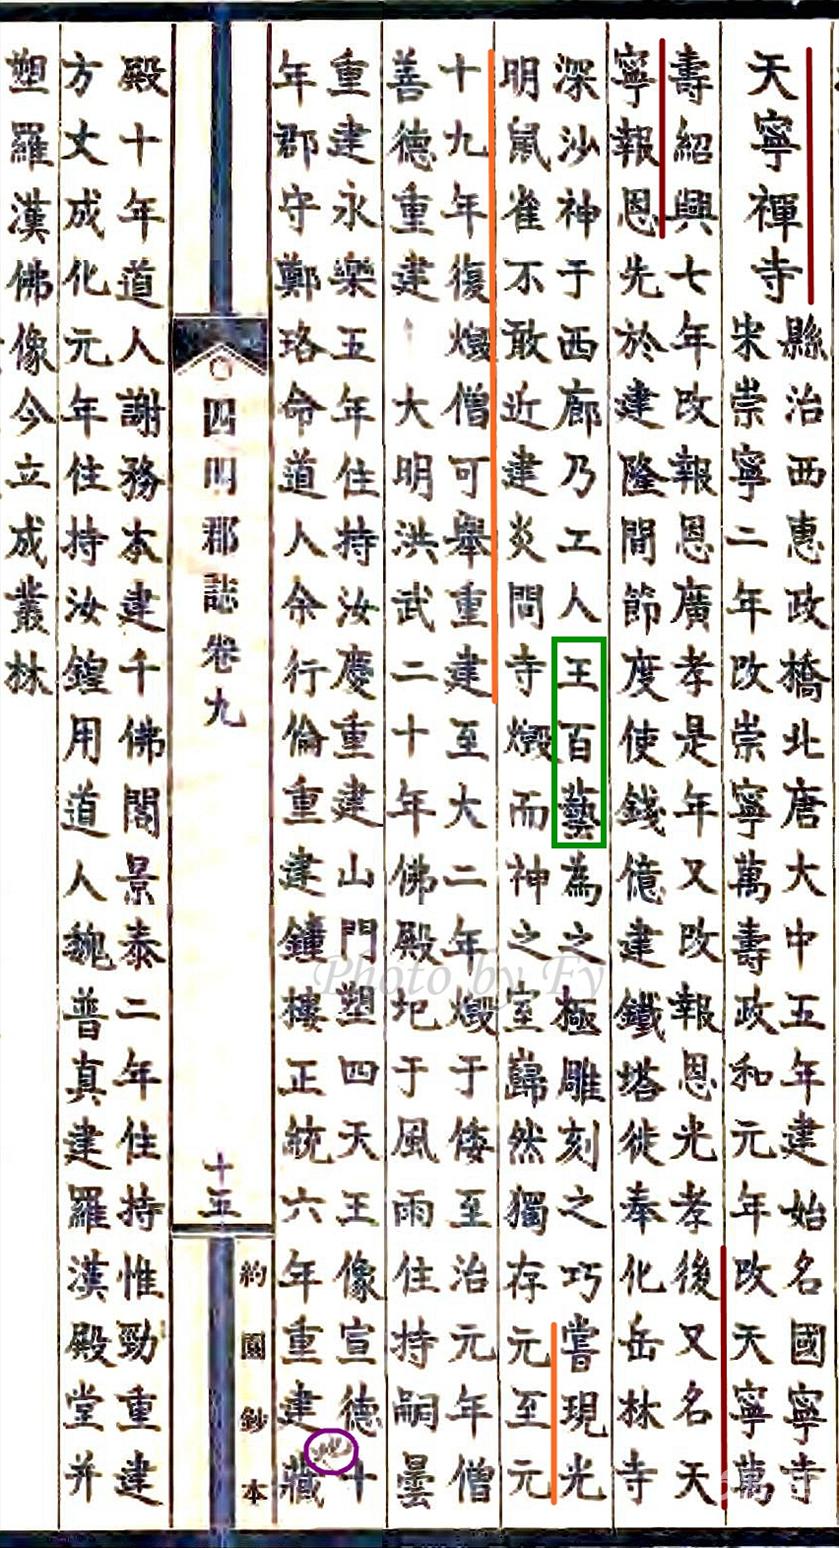 天寧禪寺
縣治西惠政橋北唐大中五年建始名國寧寺
宋崇寧二年改崇寧萬壽政和元年改天寧萬
壽紹興七年改報恩廣孝是年又改報恩光孝後又名天
寧報恩先於建隆間節度使錢億建鐵塔徙奉化岳林寺
深沙神于西廊乃工人王百藝為之極雕刻之巧嘗現光
明鼠雀不敢近建炎間寺燬而神之室巋然獨存元至元
十九年復燬僧可舉重建至大二年燬于倭至治元年僧
善德重建 大明洪武二十年佛殿圮于風雨住持嗣曇
重建永樂五年住持汝慶重建山門塑四天王像宣德十
年郡守鄭珞命道人余行倫重建鐘樓正統六年重建藏
四明郡誌卷九
十五
約園鈔本
殿十年道人謝務本建千佛閣景泰二年住持惟勁重建
方丈成化元年住持汝鍠用道人魏普真建羅漢殿堂并
塑羅漢佛像今立成叢林
Photo by Fy